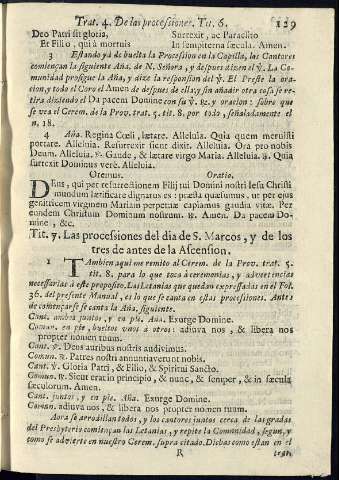 Trat. 4. De las procesiones. Tit. 6. 129
Deo Patri sit gloria, Surrexit, ac Paraclito
Et Filio, qui à mortuis In sempiterna sæcula. Amen.
3 Estando yà de buelta la Procesion en la Capilla, las Cantores
comiençan la siguiente Aña. de N. Señora, y despues dizen el ℣. La Co-
munidad prosigue la Aña, y dize la responsion del ℣. El Preste la ora-
cion, y todo el Coro el Amen de despues de ella; y sin añadir otra cosa se re-
tira diziendo el Da pacem Domine con su ℣. ℟. y oracion: sobre que
se vea el Cerem. de la Prov. trat. 5. tit. 8. por todo, señaladamente el
n. 18.
4 Aña. Regina Cœli, lætare. Alleluia. Quia quem meruisti
portare. Alleluia. Resurrexit sicut dixit. Alleluia. Ora pro nobis
Deum. Alleluia. ℣. Gaude, & lætare virgo Maria. Alleluia. ℟. Quia
surrexit Dominus verè. Alleluia.
Oremus. Oratio.
DEus, qui per resurrectionem Filij tui Domini nostri Iesu Christi
mundum lætificare dignatus es: præsta quæsumus, ut per ejus
genitricem virginem Mariam perpetuæ capiamus gaudia vitæ. Per
eundem Christum Dominum nostrum. ℟. Amen. Da pacem Do-
mine, &c.
Tit. 7. Las processiones del dia de S. Marcos, y de los
tres de antes de la Ascension.
1 TAmbien aqui me remito al Cerem. de la Prov. trat. 5.
tit. 8. para lo que toca à ceremonias, y advertencias
necessarias à este proposito. Las Letanias que quedan expressadas en el Fol.
36. del presente Manual, es lo que se canta en estas procesiones. Antes
de començarse se canta la Aña, siguiente.
Cant. ambos juntos, y en pie. Aña. Exurge Domine.
Comun. en pie, bueltos unos à otros: adiuva nos, & libera nos
propter nomen tuum.
Cant. ℣. Deus auribus nostris audivimus.
Comun. ℟. Patres nostri annuntiaverunt nobis.
Cant. ℣. Gloria Patri, & Filio, & Spiritui Sancto.
Comun. ℟. Sicut erat in principio, & nunc, & semper, & in sæcula
sæculorum. Amen.
Cant. juntos, y en pie. Aña. Exurge Domine.
Comun. adiuva nos, & libera nos propter nomen tuum.
Aora se arrodillan todos, y los cantores juntos cerca de las gradas
del Presbyterio comiençan las Letanias, y repite la Comunidad, segun, y
como se advierte en nuestro Cerem. supra citado. Dichas como estan en el
R